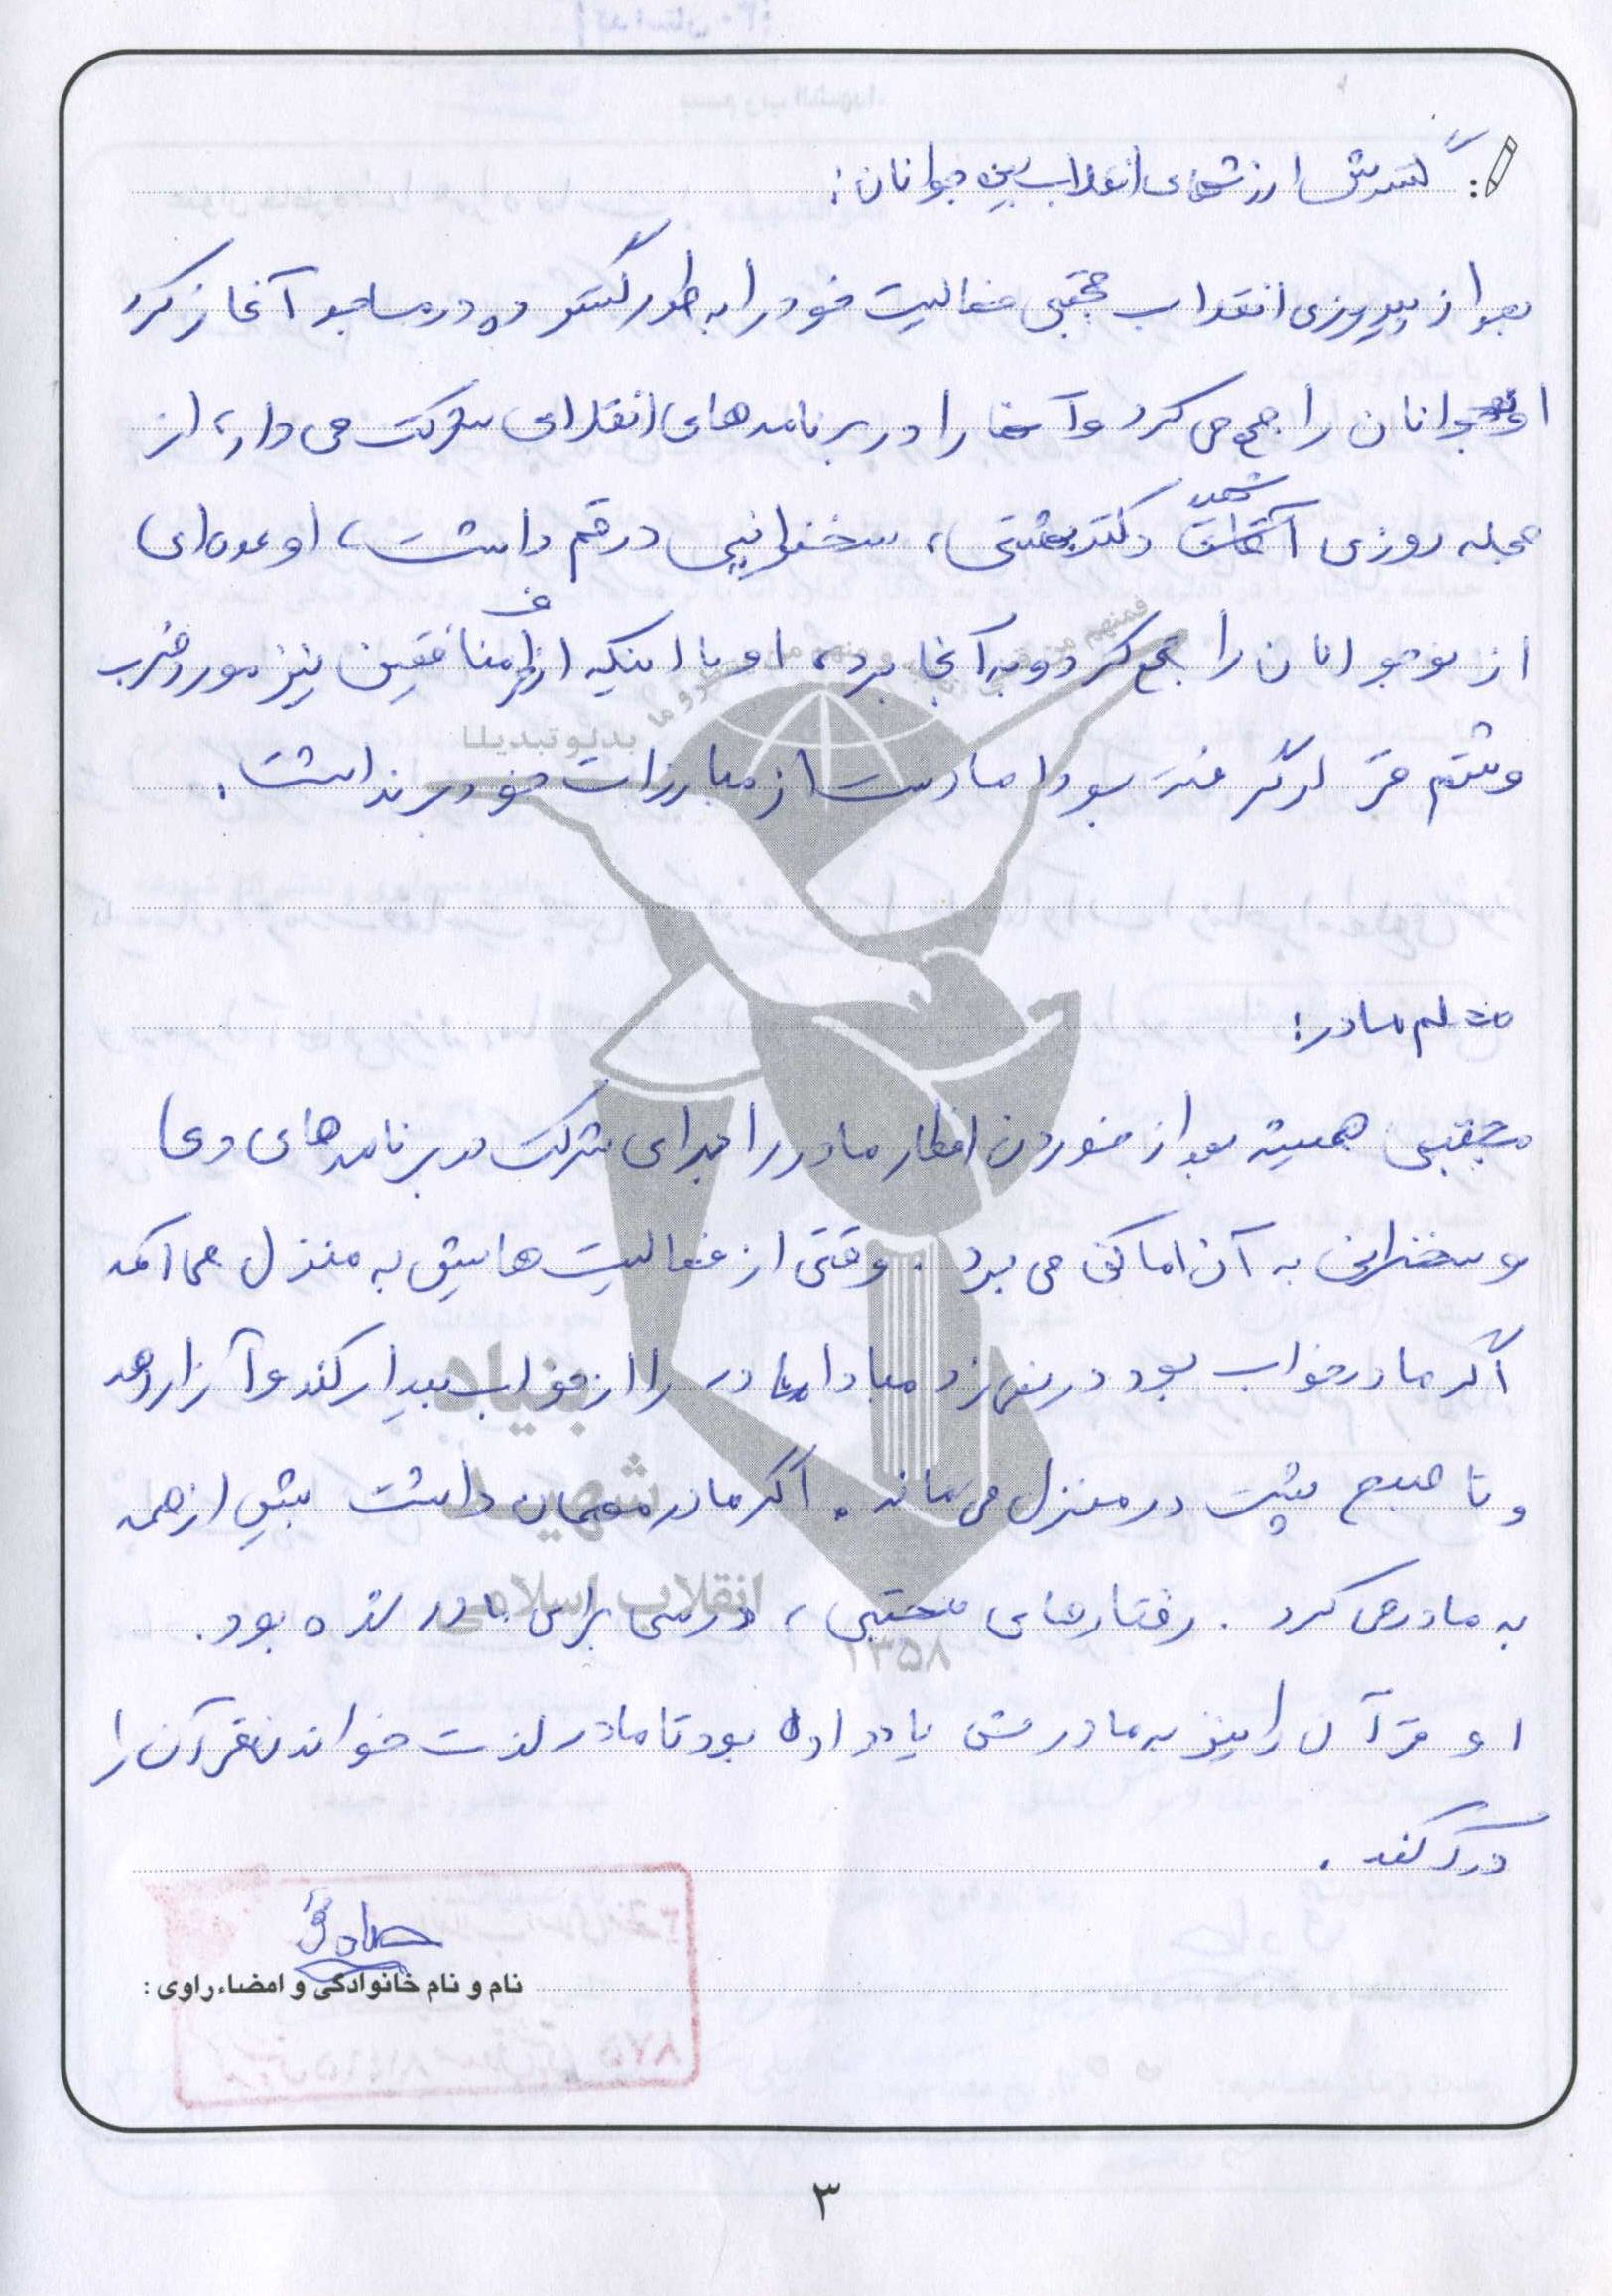 گسترش ارزشهای انقلاب بین جوانان:
بعد از پیروزی انقلاب مجتبی فعالیت خود را به طور گسترده در مساجد آغاز کرد
او جوانان را جمع می کرد و آنها را در برنامه های انقلابی شرکت می داد، از
جمله روزی شهید دکتر بهشتی، سخنرانیی در قم داشت، او عده ای
از نوجوانان را جمع کرد و به آنجا برد، او با اینکه از طرف منافقین نیز مورد ضرب
و شتم قرار گرفته بود اما دست از مبارزات خود برنداشت.
فمنهم من و منهم من و ما بدلو تبدیلا
معلم مادر:
مجتبی همیشه بعد از خوردن افطار مادر را برای شرکت در برنامه های دعا
و سخنرانی به آن اماکن می برد. وقتی از فعالیت هایش به منزل می آمد
اگر مادر خواب بود در نمی زد مبادا مادر را از خواب بیدار کند و آزار دهد
و تا صبح پشت در منزل می ماند. اگر مادر مهمان داشت بیش از همه
به مادر می کرد. رفتارهای مجتبی، درسی برای مادر شده بود.
او قرآن را نیز به مادرش یاد داده بود تا مادر لذت خواندن قرآن را
درک کند.
بنیاد
شهید
انقلاب اسلامی
۱۳۵۸
صادقی
نام و نام خانوادگی و امضاء راوی:
۳